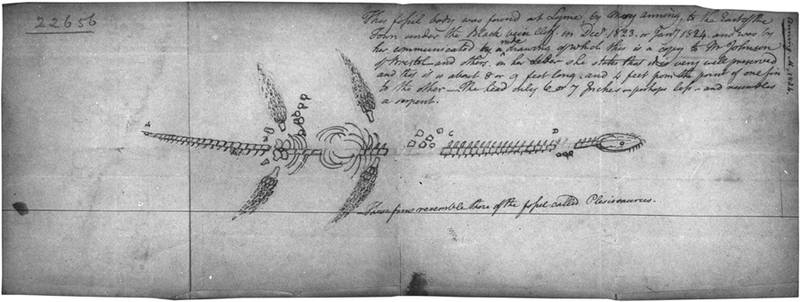 22656
This fossil body was found at Lyme, by Mary Anning, to the East of the
Town under the Black Cliff, in Decr 1823, or Jany 1824, and was by
rude
her communicated by a drawing of which this is a copy to Mr Johnson
of Bristol and others, in her letter she states that it is very well preserved
and that it is about 8 or 9 feet long, and 4 feet from the point of one fin
to the other — The head only 6 or 7 Inches — perhaps less — and resembles
a serpent.
Anning, M. 1824.
These fins resemble those of the fossil called Plesiosaurus.